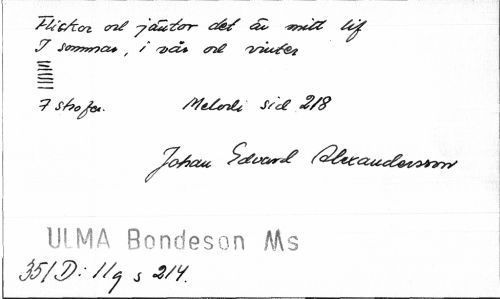 Flickor och jäntor det är mitt lif
I sommar, i vår och vinter
7 strofer. Melodi sid 218
Johan Edvard Alexandersson
ULMA Bondeson Ms
351 D: 11g s 214.